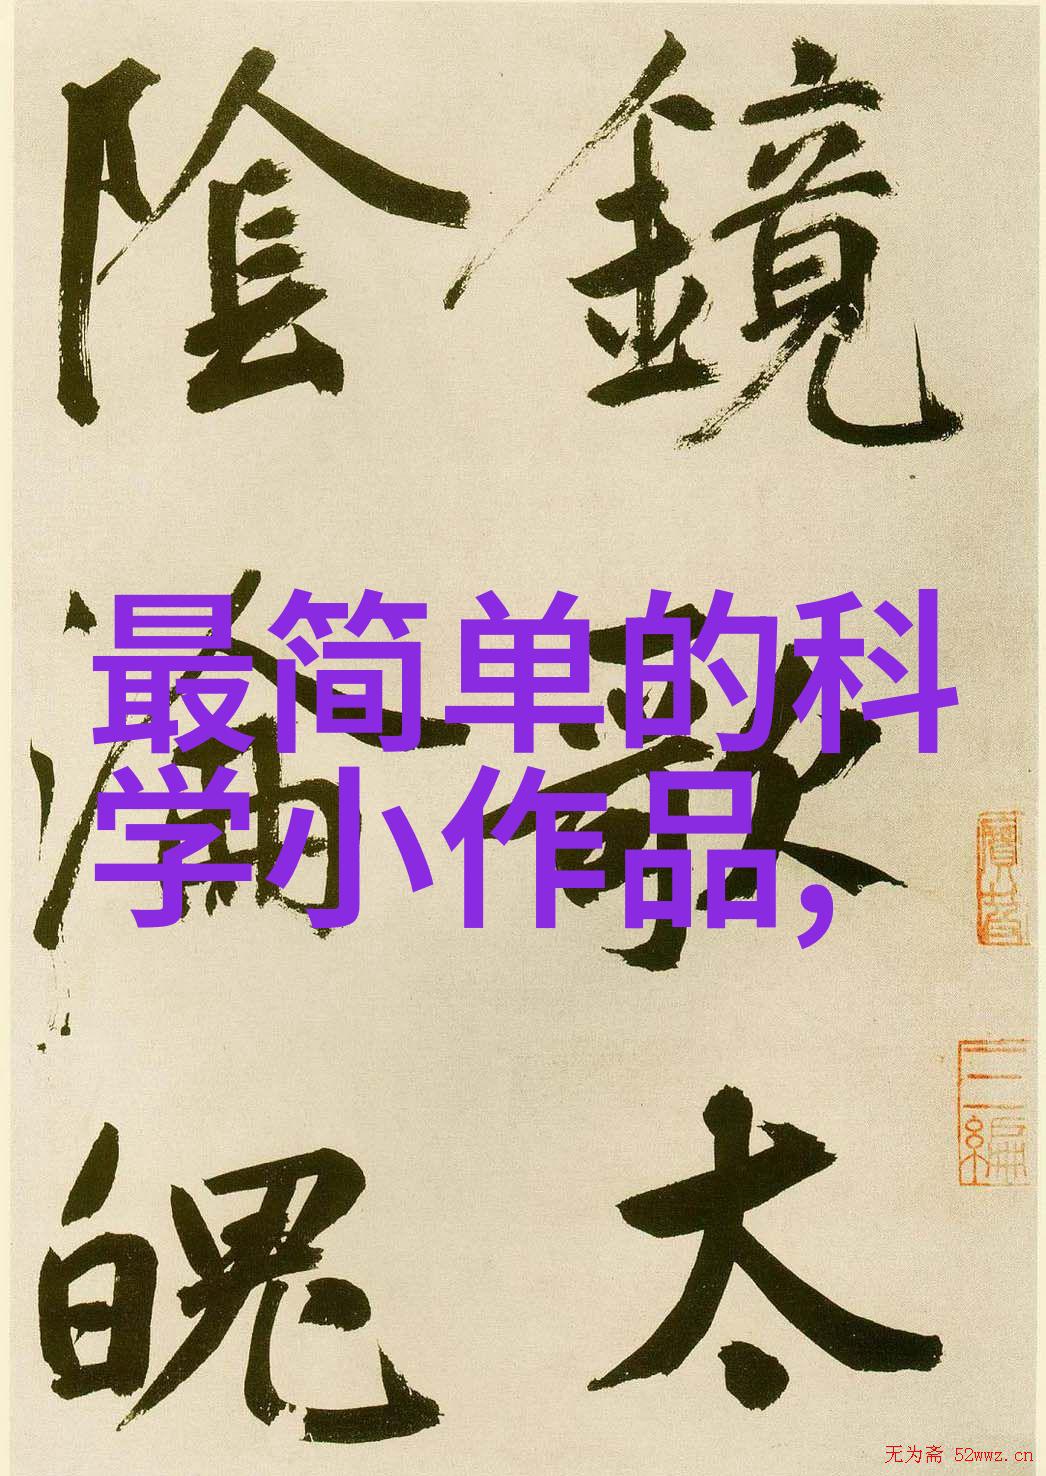 最简单的科
学小作品,
鏡
太
陰
淪
魄
无为斋 52wwz.cn